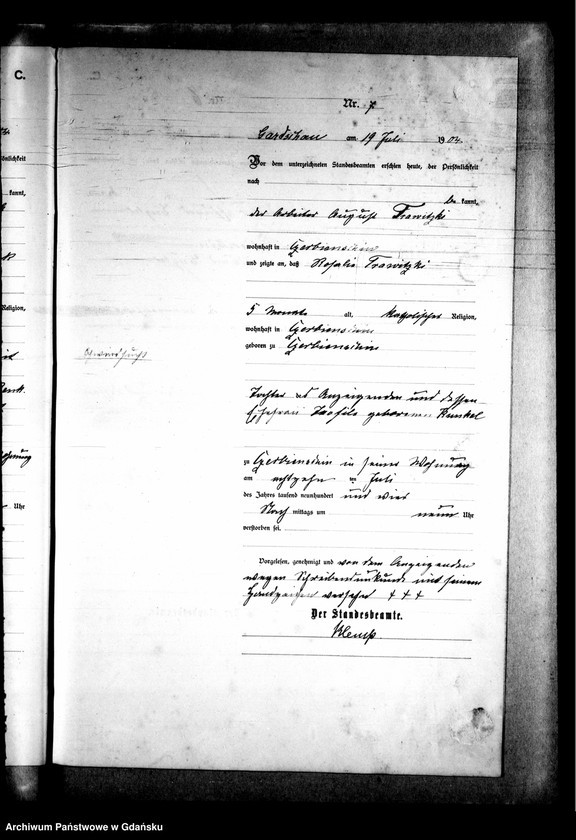 C.
Nr. 7
Gardschau am 19 Juli 1904.
Vor dem unterzeichneten Standesbeamten erschien heute, der Persönlichkeit
nach
be kannt,
der Arbeiter August Trawitzki
wohnhaft in
und zeigte an, daß Rosalie Trawitzki
5 Monate alt, katholischer Religion,
wohnhaft in
geboren zu
Schwindsucht
Tochter des Anzeigenden und dessen
Ehefrau geborenen Kunkel
zu in seiner Wohnung
am achtzehn ten Juli
des Jahres tausend neunhundert und vier
Nach mittags um neun Uhr
verstorben sei.
Vorgelesen, genehmigt und von dem Anzeigenden
wegen Schreibensunkunde mit seinem
Handzeichen versehen + + +
Der Standesbeamte.
önlichkeit
kannt,
Religion,
Uhr
Archiwum Państwowe w Gdańsku